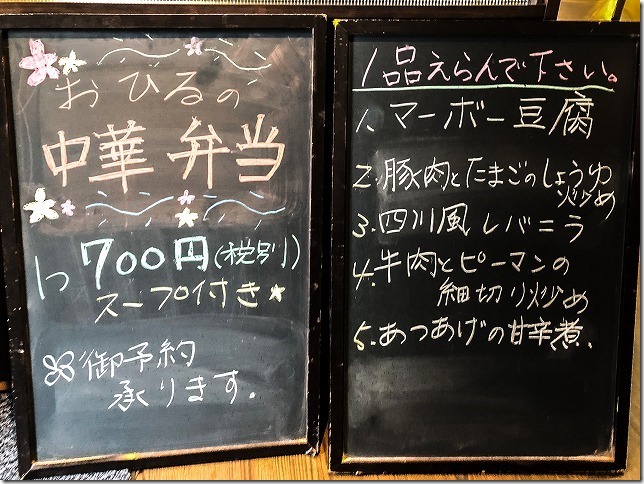 おひるの
中華弁当
1つ700円(税別)
スープ付き
御予約
承ります。
1品えらんで下さい。
1.マーボー豆腐
2.豚肉とたまごのしょうゆ
炒め
3.四川風レバニラ
4.牛肉とピーマンの
細切り炒め
5.あつあげの甘辛煮、